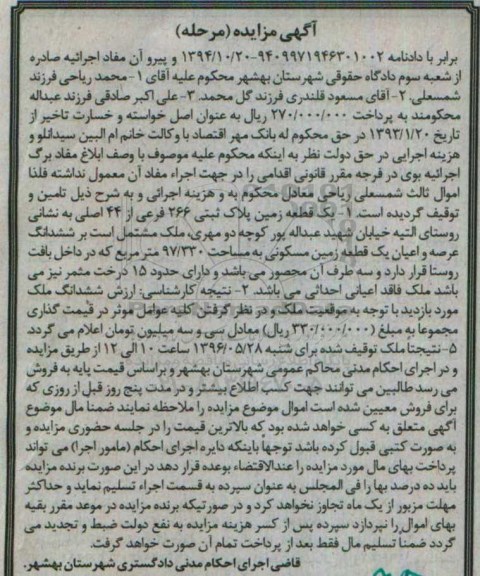 آگهی مزایده (مرحله)
برابر با دادنامه ۹۴۰۹۹۷۱۹۴۶۳۰۱۰۰۲-۱۳۹۴/۱۰/۲۰ و پیرو آن مفاد اجرائیه صادره
از شعبه سوم دادگاه حقوقی شهرستان بهشهر محکوم علیه آقای ۱- محمد ریاحی فرزند
شمسعلی. ۲- آقای مسعود قلندری فرزند گل محمد. ۳- علی اکبر صادقی فرزند عبداله
محکومند به پرداخت ۲۷۰/۰۰۰/۰۰۰ ریال به عنوان اصل خواسته و خسارت تاخیر از
تاریخ ۱۳۹۳/۱/۲۰ در حق محکوم له بانک مهر اقتصاد با وکالت خانم ام البین سیدانلو و
هزینه اجرایی در حق دولت نظر به اینکه محکوم علیه موصوف با وصف ابلاغ مفاد برگ
اجرائیه بوی در فرجه مقرر قانونی اقدامی را در جهت اجراء مفاد آن معمول نداشته فلذا
اموال ثالث شمسعلی ریاحی معادل محکوم به و هزینه اجرائی و به شرح ذیل تامین و
توقیف گردیده است. ۱- یک قطعه زمین پلاک ثبتی ۲۶۶ فرعی از ۴۴ اصلی به نشانی
روستای التپه خیابان شهید عبداله پور کوچه دو مهری، ملک مشتمل است بر ششدانگ
عرصه و اعیان یک قطعه زمین مسکونی به مساحت ۹۷/۳۳۰ متر مربع که در داخل بافت
روستا قرار دارد و سه طرف آن محصور می باشد و دارای حدود ۱۵ درخت مثمر نیز می
باشد ملک فاقد اعیانی احداثی می باشد. ۲- نتیجه کارشناسی: ارزش ششدانگ ملک
مورد بازدید با توجه به موقعیت ملک و در نظر گرفتن کلیه عوامل موثر در قیمت گذاری
مجموعا به مبلغ (۳۳۰/۰۰۰/۰۰۰ ریال) معادل سی و سه میلیون تومان اعلام می گردد
۵- نتیجتا ملک توقیف شده برای شنبه ۱۳۹۶/۰۵/۲۸ ساعت ۱۰ الی ۱۲ از طریق مزایده
و در اجرای احکام مدنی محاکم عمومی شهرستان بهشهر و براساس قیمت پایه به فروش
می رسد طالبین می توانند جهت کسب اطلاع بیشتر و در مدت پنج روز قبل از روزی که
برای فروش معیین شده است اموال موضوع مزایده را ملاحظه نمایند ضمنا مال موضوع
آگهی متعلق به کسی خواهد شده بود که بالاترین قیمت را در جلسه حضوری مزایده و
به صورت کتبی قبول کرده باشد توجها باینکه دایره اجرای احکام (مامور اجرا) می تواند
پرداخت بهای مال مورد مزایده را عندالاقتضاء بوعده قرار دهد در این صورت برنده مزایده
باید ده درصد بها را فی المجلس به عنوان سپرده به قسمت اجراء تسلیم نماید و حداکثر
مهلت مزبور از یک ماه تجاوز نخواهد کرد و در صورتیکه برنده مزایده در موعد مقرر بقیه
بهای اموال را نپردازد سپرده پس از کسر هزینه مزایده به نفع دولت ضبط و تجدید می
گردد ضمناً تسلیم مال فقط بعد از پرداخت تمام آن صورت خواهد گرفت.
قاضی اجرای احکام مدنی دادگستری شهرستان بهشهر.